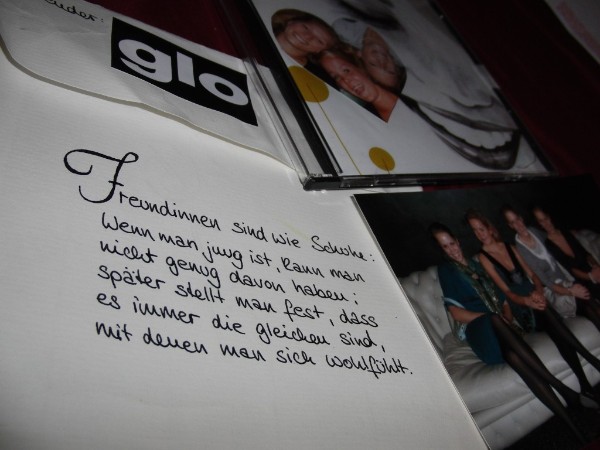 glo
Freundinnen sind wie Schuhe:
Wenn man jung ist, kann man
nicht genug davon haben;
später stellt man fest, dass
es immer die gleichen sind,
mit denen man sich wohlfühlt.